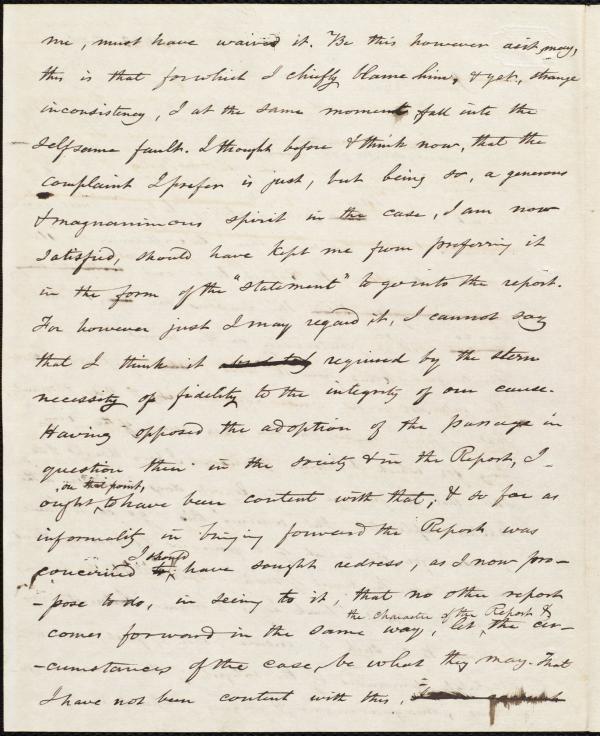 me, must have waived it. Be this however as it may,
this is that for which I chiefly blame him, & yet, strange
inconsistency, I at the same moment fall into the
selfsame fault. I thought before & think now, that the
complaint I prefer is just, but being so, a generous
& magnanimous spirit in the case, I am now
satisfied, should have kept me from preferring it
in the form of the "statement" to go into the report.
For however just I may regard it, I cannot say
that I think it absolutely required by the stern
necessity of fidelity to the integrity of our cause.
Having opposed the adoption of the passage in
question then in the society & in the Report, I
on that point,
ought, to have been content with that; & so far as
informality in bringing forward the Report was
I should
concerned to have sought redress, as I now pro-
-pose to do, in seeing to it, that no other report
the character of the Report &
comes forward in the same way, let the cir-
-cumstances of the case, be what they may. That
I have not been content with this,